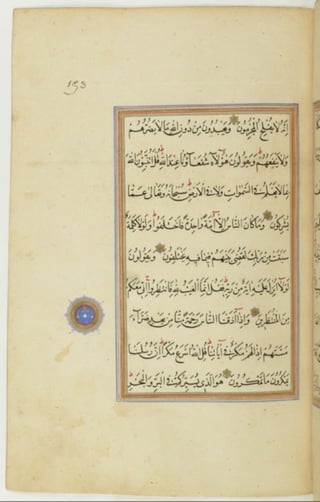 اِنَّهُ لَا يُفْلِحُ الْمُجْرِمُونَ وَيَعْبُدُونَ مِنْ دُونِ اللّٰهِ مَا لَا يَضُرُّهُمْ
وَلَا يَنْفَعُهُمْ وَيَقُولُونَ هٰؤُلَاءِ شُفَعَاؤُنَا عِنْدَ اللّٰهِ قُلْ اَتُنَبِّؤُنَ اللّٰهَ
بِمَا لَا يَعْلَمُ فِي السَّمٰوَاتِ وَلَا فِي الْاَرْضِ سُبْحَانَهُ وَتَعَالٰى عَمَّا
يُشْرِكُونَ وَمَا كَانَ النَّاسُ اِلَّا اُمَّةً وَاحِدَةً فَاخْتَلَفُوا وَلَوْلَا كَلِمَةٌ
سَبَقَتْ مِنْ رَبِّكَ لَقُضِيَ بَيْنَهُمْ فِيمَا فِيهِ يَخْتَلِفُونَ وَيَقُولُونَ
لَوْلَا اُنْزِلَ عَلَيْهِ اٰيَةٌ مِنْ رَبِّهِ فَقُلْ اِنَّمَا الْغَيْبُ لِلّٰهِ فَانْتَظِرُوا اِنِّي مَعَكُمْ
مِنَ الْمُنْتَظِرِينَ وَاِذَا اَذَقْنَا النَّاسَ رَحْمَةً مِنْ بَعْدِ ضَرَّاءَ
مَسَّتْهُمْ اِذَا لَهُمْ مَكْرٌ فِي اٰيَاتِنَا قُلِ اللّٰهُ اَسْرَعُ مَكْرًا اِنَّ رُسُلَنَا
يَكْتُبُونَ مَا تَمْكُرُونَ هُوَ الَّذِي يُسَيِّرُكُمْ فِي الْبَرِّ وَالْبَحْرِ